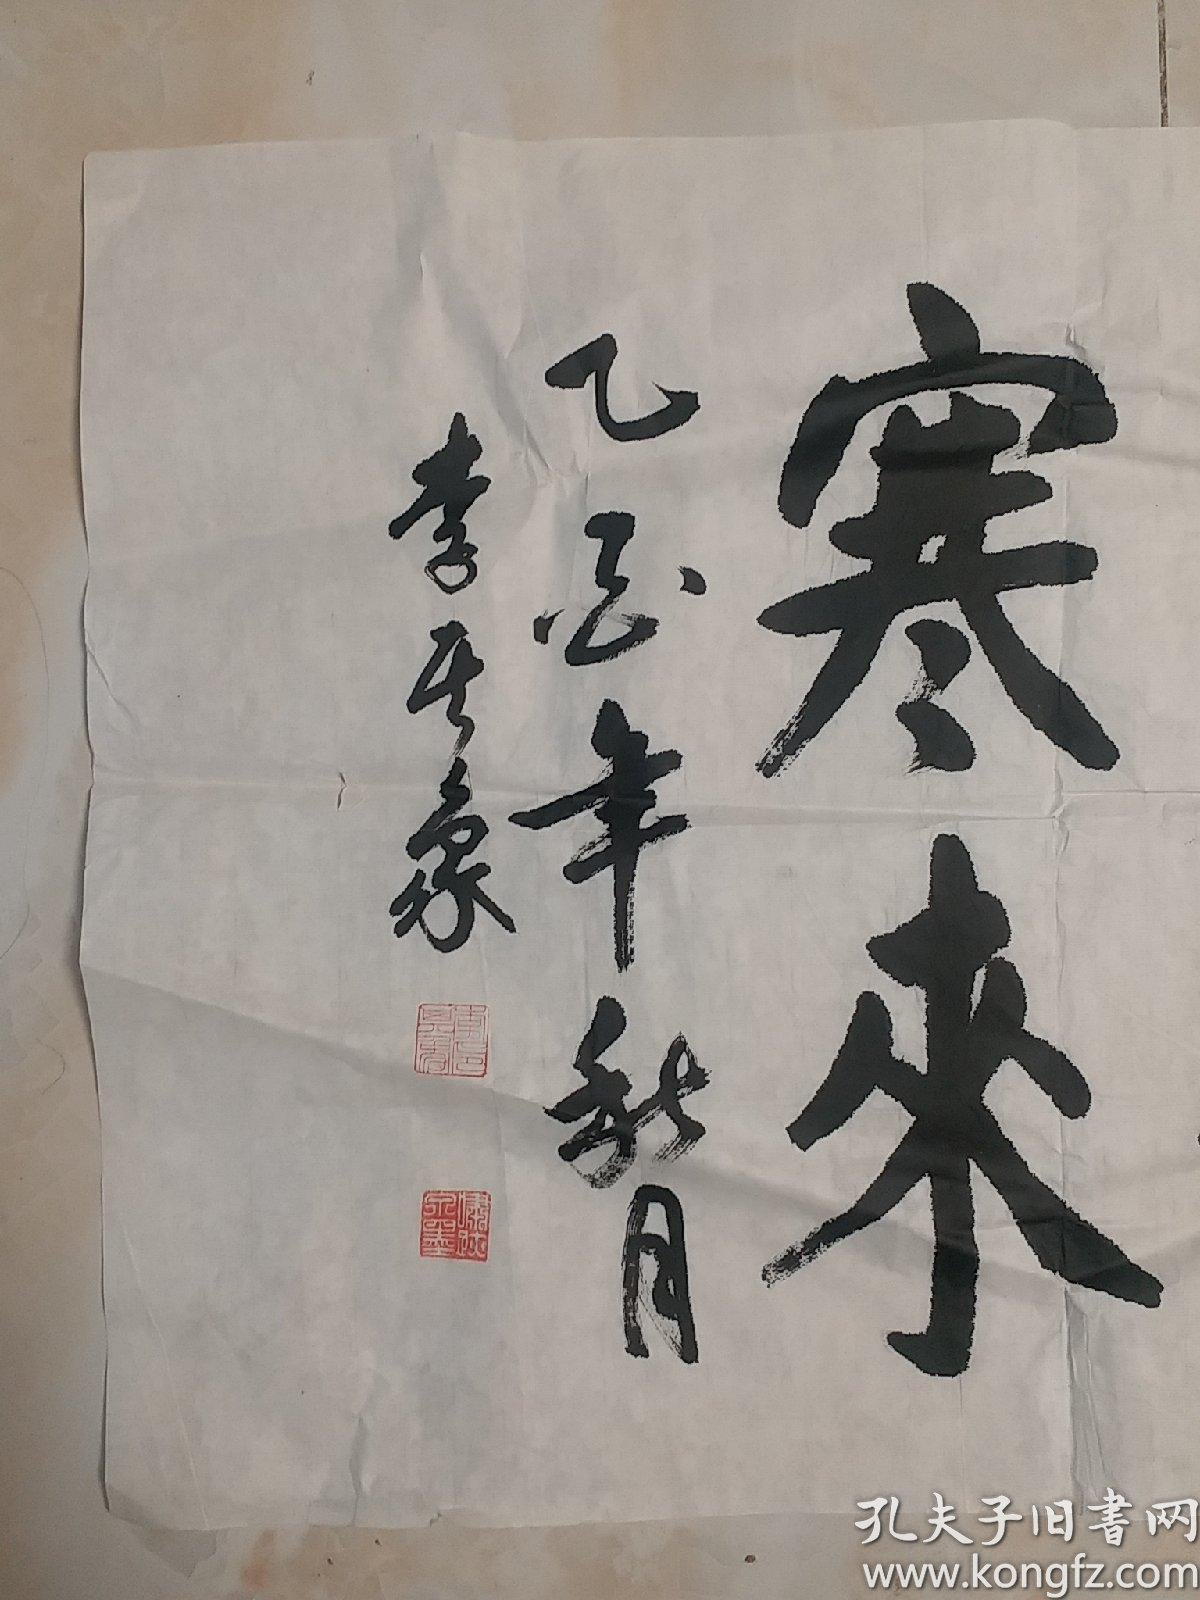 寒來
乙酉年秋月
李其象
孔夫子旧书网
www.kongfz.com